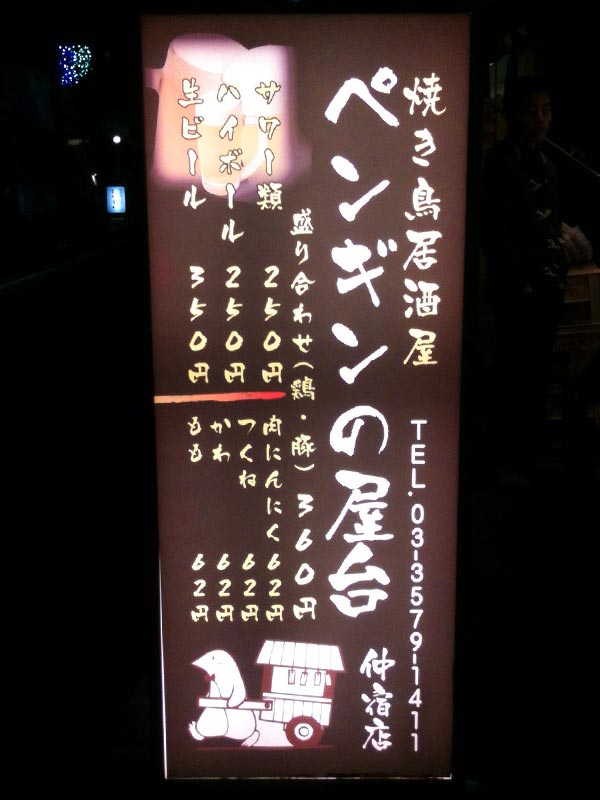 焼き鳥居酒屋
TEL.03-3579-1411
ペンギンの屋台
仲宿店
盛り合わせ(鶏・豚)360円
サワー類 250円
ハイボール 250円
生ビール 350円
肉にんにく 62円
つくね 62円
かわ 62円
もも 62円